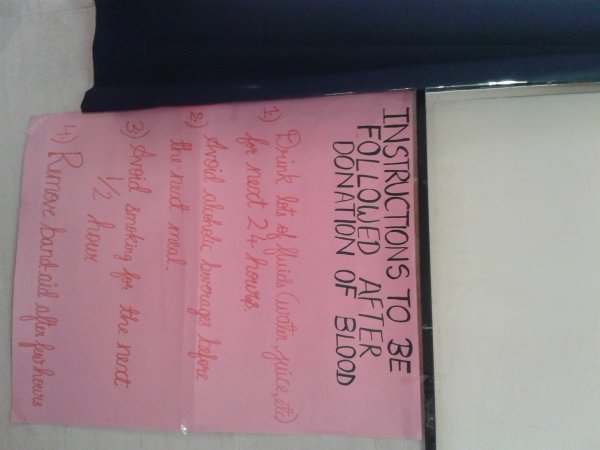 INSTRUCTIONS TO BE
FOLLOWED AFTER
DONATION OF BLOOD
1) Drink lots of fluids (water, juice, etc)
for next 24 hours.
2) Avoid alcoholic beverages before
the next meal.
3) Avoid smoking for the next
1/2 hour
4) Remove band-aid after few hours